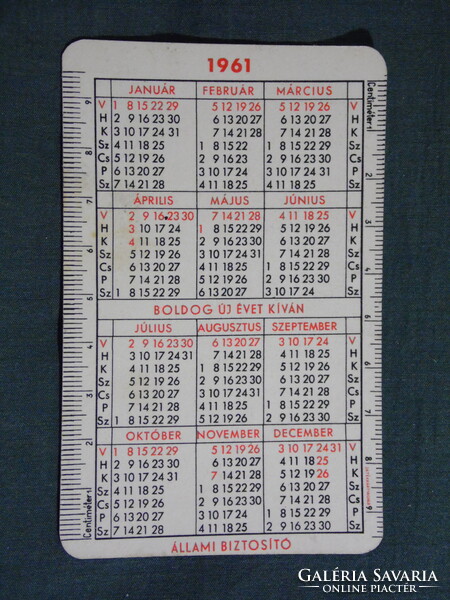 1961
JANUÁR FEBRUÁR MÁRCIUS
V 1 8 15 22 29 5 12 19 26 5 12 19 26 V
H 2 9 16 23 30 6 13 20 27 6 13 20 27 H
K 3 10 17 24 31 7 14 21 28 7 14 21 28 K
Sz 4 11 18 25 1 8 15 22 1 8 15 22 29 Sz
Cs 5 12 19 26 2 9 16 23 2 9 16 23 30 Cs
P 6 13 20 27 3 10 17 24 3 10 17 24 31 P
Sz 7 14 21 28 4 11 18 25 4 11 18 25 Sz
ÁPRILIS MÁJUS JÚNIUS
V 2 9 16 23 30 7 14 21 28 4 11 18 25 V
H 3 10 17 24 1 8 15 22 29 5 12 19 26 H
K 4 11 18 25 2 9 16 23 30 6 13 20 27 K
Sz 5 12 19 26 3 10 17 24 31 7 14 21 28 Sz
Cs 6 13 20 27 4 11 18 25 1 8 15 22 29 Cs
P 7 14 21 28 5 12 19 26 2 9 16 23 30 P
Sz 1 8 15 22 29 6 13 20 27 3 10 17 24 Sz
BOLDOG ÚJ ÉVET KÍVÁN
JÚLIUS AUGUSZTUS SZEPTEMBER
V 2 9 16 23 30 6 13 20 27 3 10 17 24 V
H 3 10 17 24 31 7 14 21 28 4 11 18 25 H
K 4 11 18 25 1 8 15 22 29 5 12 19 26 K
Sz 5 12 19 26 2 9 16 23 30 6 13 20 27 Sz
Cs 6 13 20 27 3 10 17 24 31 7 14 21 28 Cs
P 7 14 21 28 4 11 18 25 1 8 15 22 29 P
Sz 1 8 15 22 29 5 12 19 26 2 9 16 23 30 Sz
OKTÓBER NOVEMBER DECEMBER
V 1 8 15 22 29 5 12 19 26 3 10 17 24 31 V
H 2 9 16 23 30 6 13 20 27 4 11 18 25 H
K 3 10 17 24 31 7 14 21 28 5 12 19 26 K
Sz 4 11 18 25 1 8 15 22 29 6 13 20 27 Sz
Cs 5 12 19 26 2 9 16 23 30 7 14 21 28 Cs
P 6 13 20 27 3 10 17 24 1 8 15 22 29 P
Sz 7 14 21 28 4 11 18 25 2 9 16 23 30 Sz
ÁLLAMI BIZTOSÍTÓ
Centiméters
1
2
3
4
5
6
7
8
9
Centiméters
2
3
4
5
6
7
8
9
GALÉRIA SAVARIA
ONLINE PIACTÉR